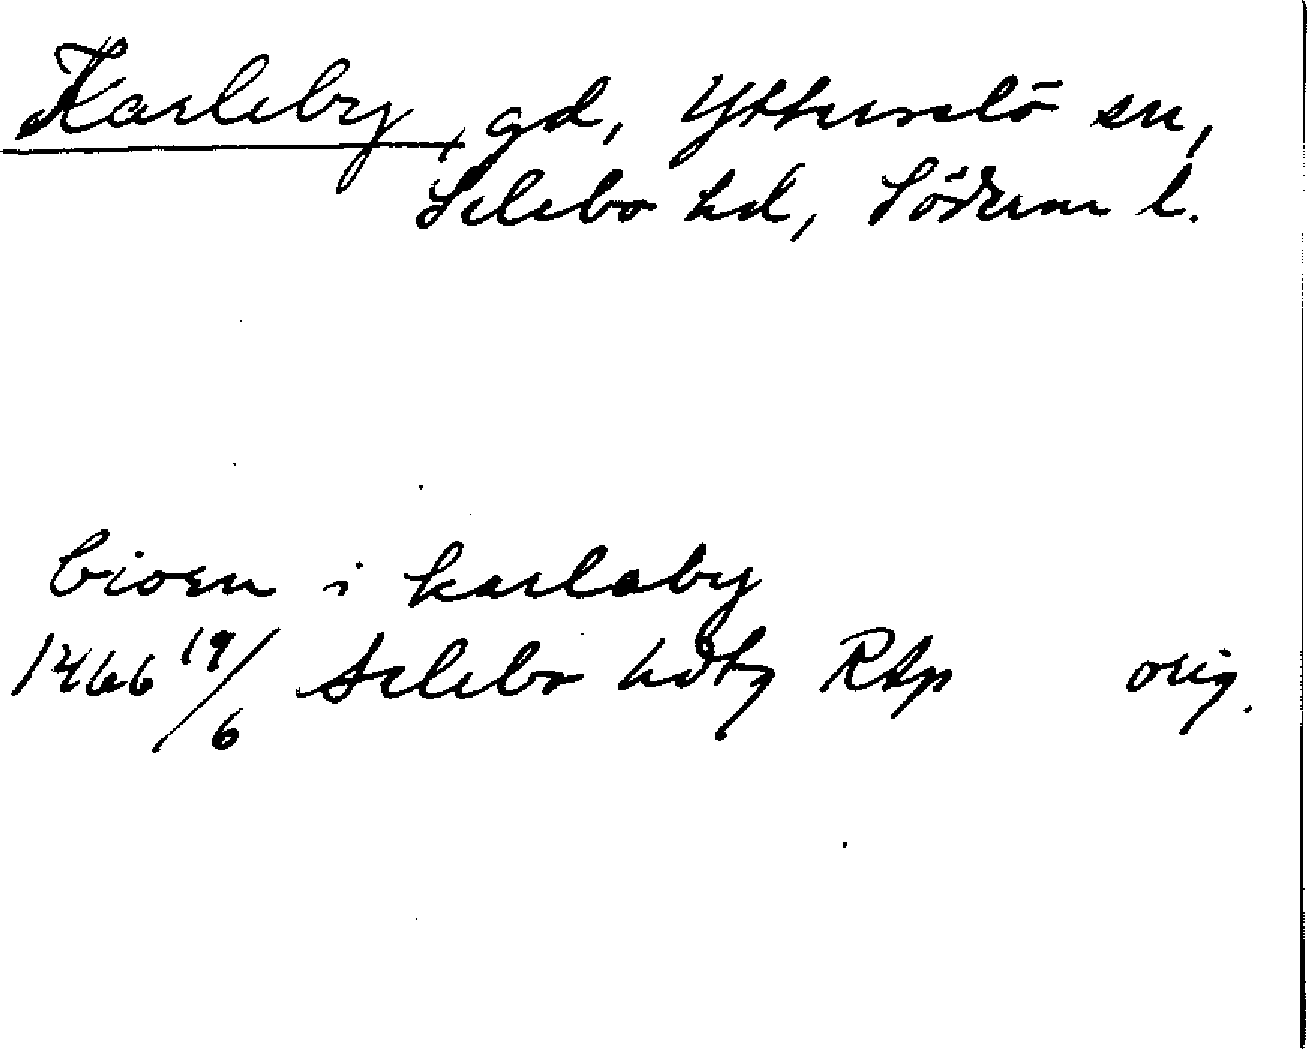 Karleby, gd, Ytterselö sn,
Selebo hd, Söderm l.
biorn i karlaby
1466 19/6 Selebo hdtg RAp orig.